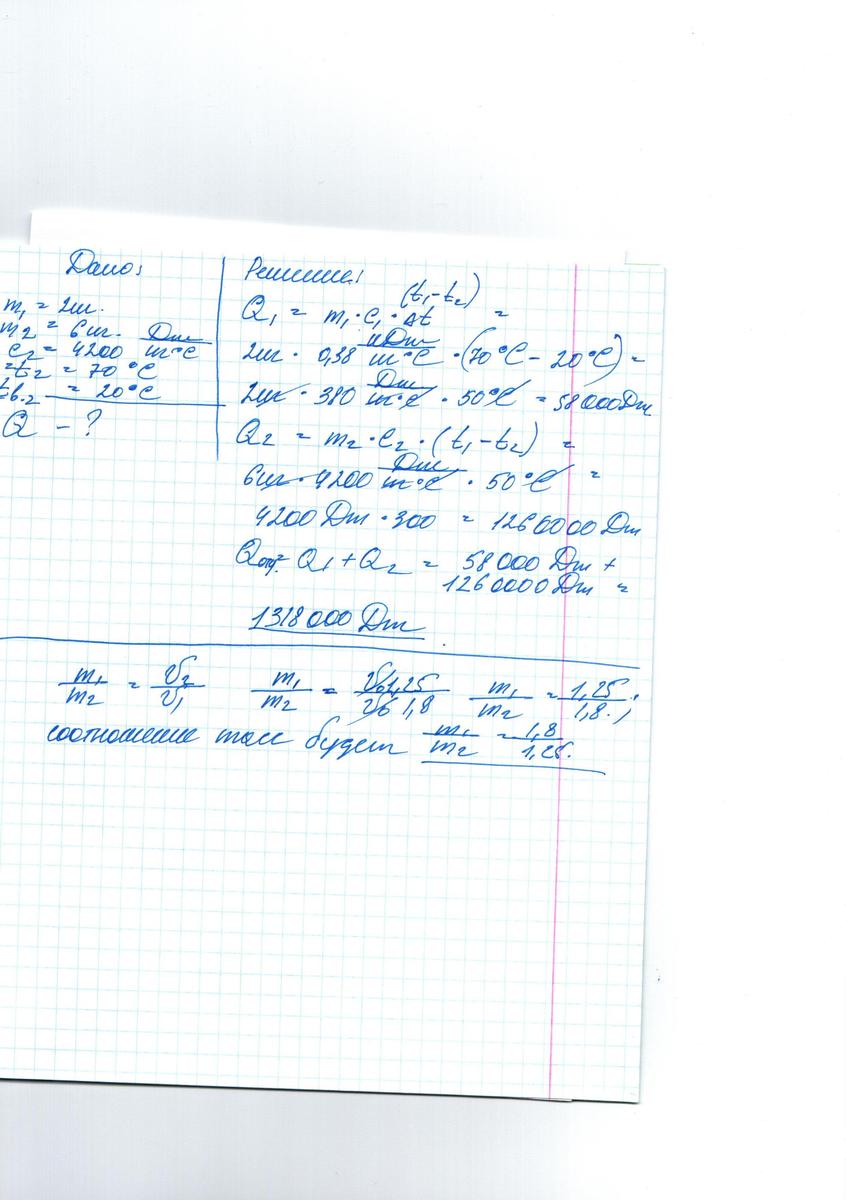 Дано:
m₁ = 2кг.
m₂ = 6кг.
c₂ = 4200 Дж/кг°C
t₂ = 70°C
= 20°C
Q - ?
Решение:
Q₁ = m₁·c₁·Δt (t₁-t₂) =
2кг · 0,38 кДж/кг°C · (70°C - 20°C) =
2кг · 380 Дж/кг°C · 50°C = 58000Дж
Q₂ = m₂·c₂·(t₁-t₂) =
6кг · 4200 Дж/кг°C · 50°C =
4200 Дж · 300 = 1260000 Дж
Qот = Q₁ + Q₂ = 58000 Дж +
1260000 Дж =
1318000 Дж
m₁/m₂ = V₂/V₁ m₁/m₂ = 1,25/1,8 m₁/m₂ = 1,25/1,8
соотношение масс будет m₁/m₂ = 1,8/1,25.